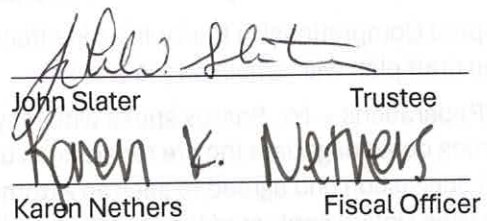 John Slater Trustee
Karen K. Nethers
Karen Nethers Fiscal Officer